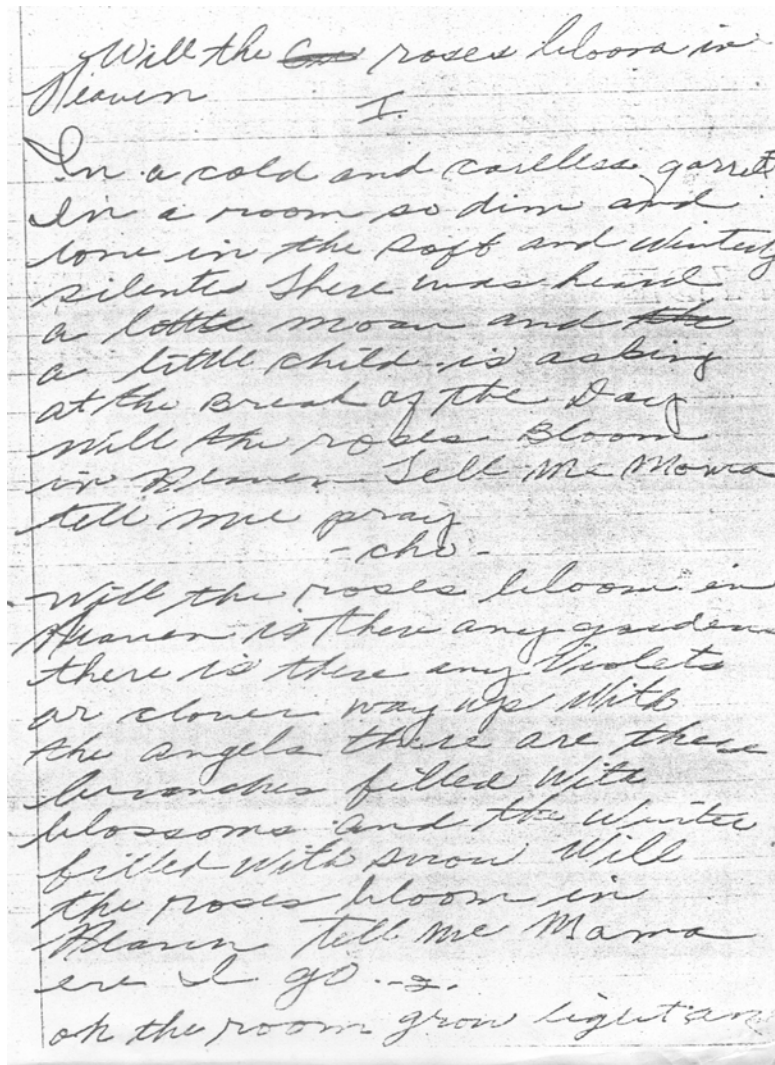 Will the roses bloom in
Heaven
I.
In a cold and careless garret
In a room so dim and
lone in the soft and Wintery
silente There was heard
a little moan and the
a little child is asking
at the Break of the Day
Will the roses Bloom
in Heaven Tell Me Moma
tell me pray
- cho -
Will the roses bloom in
Heaven is there any gardens
there is there any Violets
or clover way up With
the angels there are there
branches filled With
blossoms and the Winter
filled With snow Will
the roses bloom in
Heaven tell me Mama
ere I go .-2.
oh the room grow light an